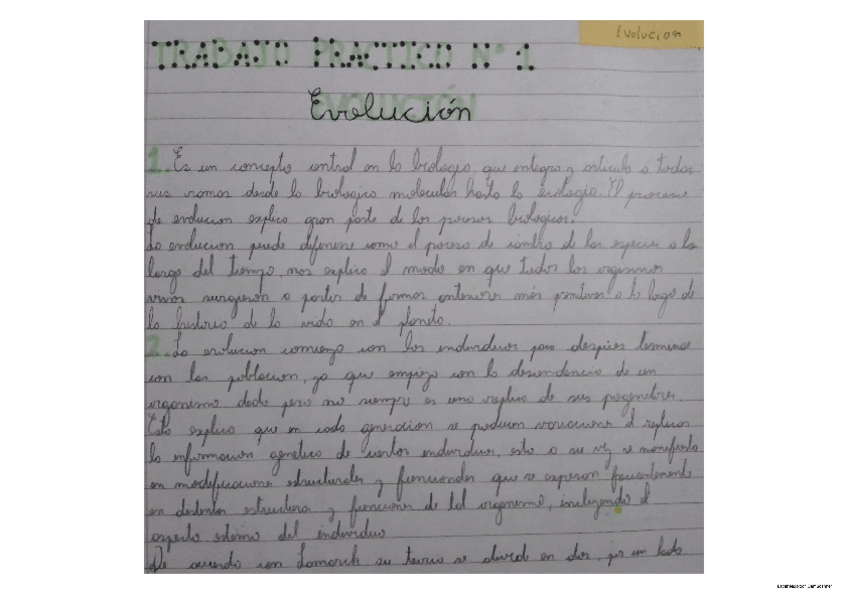 Evolucion
TRABAJO PRACTICO N° 1
Evolución
1. Es un concepto central en la biologia, que integra y articula a todas
sus ramas desde la biologia molecular hasta la ecologia. El proceso
de evolucion explica gran parte de los procesos biologicos.
La evolucion puede definirse como el proceso de cambio de las especies a lo
largo del tiempo, nos explica el modo en que todos los organismos
vivos surgieron a partir de formas anteriores más primitivas a lo largo de
la historia de la vida en el planeta.
2. La evolucion comienza con los individuos para despues terminar
con la poblacion, ya que empieza con la descendencia de un
organismo dado pero no siempre es una replica de sus progenitores.
Esto explica que en cada generacion se producen variaciones al replicar
la informacion genetica de ciertos individuos, esto a su vez se manifiesta
en modificaciones estructurales y funcionales que se expresan frecuentemente
en distintas estructuras y funciones de tal organismo, incluyendo el
aspecto externo del individuo
De acuerdo con Lamarck su teoria se dividi en dos, por un lado